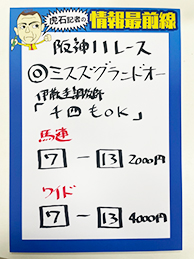 虎石記者の
情報最前線
阪神11レース
◎ミスズグランドオー
「千四もOK」
馬連
7 ー 13 2000円
ワイド
7 ー 13 4000円